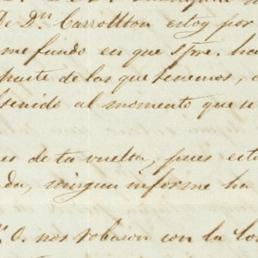 De Dn. Carrollton estoy por
me fundo en que spre. ha
parte de las que tenemos,
tenido al momento que se
de tu vuelta, pues est
ningun informe ha
O. nos robason con la